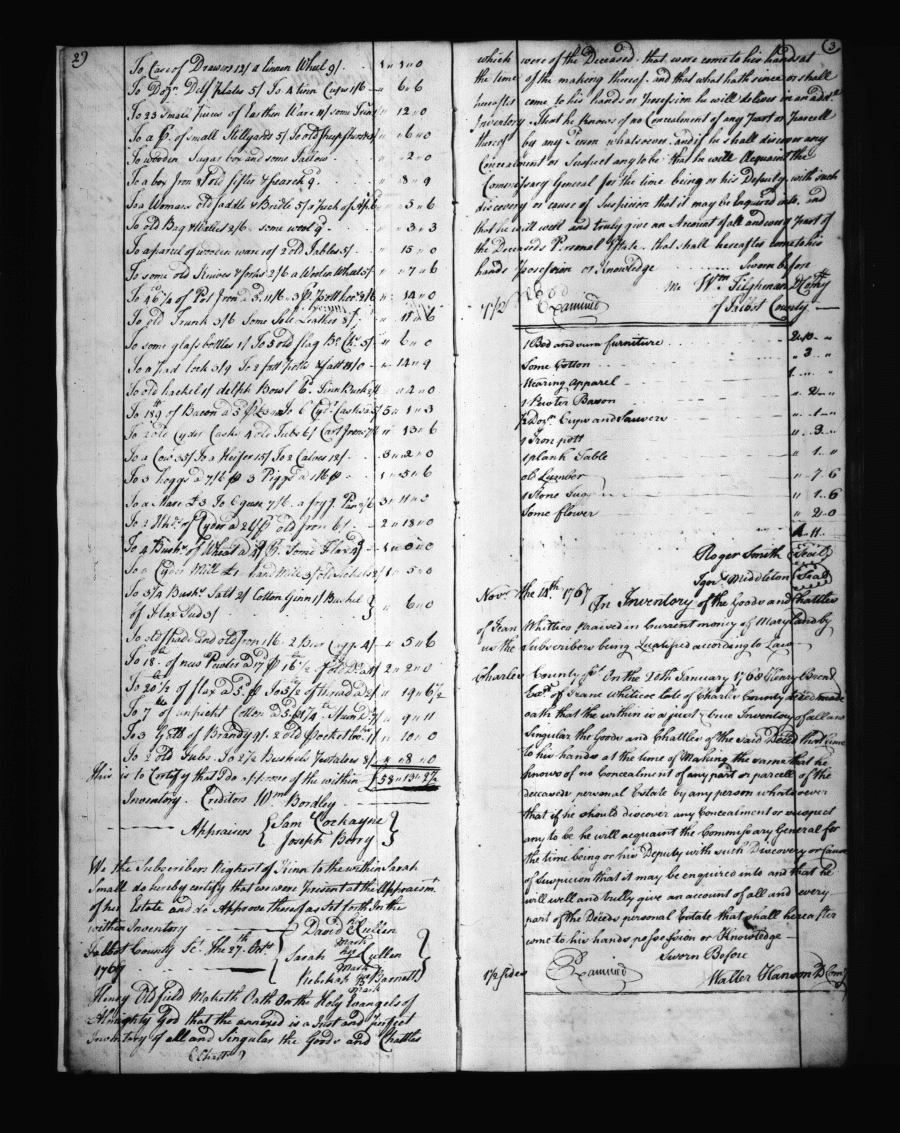 2)
To Case of Drawrs 12/ a linnen Wheel 9/ 1 " 1 " 0
To Dozn. Delf Plates 5/ To 4 tinn Cups 1/6 " 6 " 6
To 23 small pieces of Earthen Ware 11/ some " 12 " 0
To a pr. of small Stillyards 5/ To old " 6 " 0
To wooden Sugar box and some Tallow " " 2 " 0
To a box Iron & old sifter & " 8 " 9
To a Womans old saddle & Bridle 5/ a " 5 " 6
To old Bag & Wallet 2/6 some wool 9d. " 3 " 3
To a parcel of wooden ware of 2 old Tables 5/ " 15 " 0
To some old Knives & forks 2/6 a Woolen Wheel 5/ " 7 " 6
To 46 1/4 of Pot Iron " 14 " 0
To old Trunk 3/6 Some Sole Leather 8/
To some glass bottles 1/ To 5 old flag 5/ " 6 " 0
To a pad lock 3/9 " 14 " 9
To old hackel 1/ delph Bowl " 2 " 0
To 189 of Bacon a 5 5 " 1 " 3
To 2 old Cyder Casks 4 old Tubs 6/ Cart Irons " 13 " 6
To a Cow 35/ To a Heifer 15/ To 2 Calves 12/ 3 " 2 " 0
To 3 hoggs a 7/6 3 Piggs a 1 " 5 " 6
To a Mare £3 To 6 geese 7/6 a fryg. Pan 3 " 11 "
To 2 Hhds. of Cyder a 2 old Iron 6/ 2 " 18 " 0
To 4 Bushs. of Wheat a Some Flax 1 " 0 " 0
To a Cyder Mill £1 hand Mill 3/ old 1 " 5 " 0
To 3/4 Bushs. Salt 2/ Cotton Ginn 1/ Bushel
of Flax Seed 3/ } " 6 " 0
To old spade and old Iron 1/6 2 4/ " 5 " 6
To 18 of new Pewter a 17 16 1/2 of old 2 " 2 " 0
To 20 1/2 of flax a 5d. To 5 1/2 of thread a 2/ " 19 " 6 1/2
To 7 of unpickt Cotton a 5d " 9 " 11
To 3 Galls of Brandy 9/. 2 old Pocket " 10 " 0
To 2 old Tubs. To 2 1/2 Bushels Potatoes " 8 " 0
This is to Certify that I do approve of the within £58 " 13 " 2 1/2
Inventory. Creditors Wm Bordley
Appraisers { Sam Cockayne
Joseph Berry }
We the Subscribers Nighest of Kinn to the within Sarah
Small do hereby certify that we were Present at the Appraism.t
of her Estate and do Approve thereof as Set forth In the
within Inventory David Cullen
mark
Talbot County Sct. the 27th. Octr. Sarah her Cullen
1769 mark
Rebekah her Barnett
mark
Henry Oldfield Maketh Oath On the Holy Evangels of
Almighty God that the annexed is a Just and Perfect
Inventory of all and Singular the Goods and Chattles
(Chattles)
3)
which were of the Deceased. that were come to his hands at
the time of the making thereof. and that what hath since or shall
hereafter come to his hands or Possession he will deliver in an addl.
Inventory. that he knows of no Concealment of any Part or Parcell
thereof by any Person whatsoever. and if he shall discover any
Concealment or Suspect any to be. that he will Acquaint the
Commissary General for the time being or his Deputy. with such
discovery or cause of Suspicion that it may be Enquired into. and
that he will well and truly give an Account of all and every Part of
the Deceaseds Personal Estate. that shall hereafter come to his
hands Possession or Knowledge Sworn before
me Wm. Tilghman D Comry
Examined of Talbot County
1 Bed and sum furniture 2 " 10 " "
Some Cotton " 3 " "
Wearing apparel 1 " "
1 Pewter Bason " 2 " "
1/2 Dozn. Cups and Sawcers " 1 " "
1 Iron pott " 3 " "
1 plank Table " 1 " "
old Lumber " 7 " 6
1 Stone Jugg " 1 " 6
Some flower " 2 " 0
4 " 11 "
Roger Smith (Seal)
Igns. Middleton (Seal)
Novr. the 14th. 1767 An Inventory of the Goods and Chattles
of Jean Whitties praised in Current money of Maryland by
us the Subscribers being Qualified according to Law
Charles County Sct. On the 28th January 1768 Henry Brent
Exr. of Jeane Whiticoe late of Charles County deced made
oath that the within is a just & true Inventory of all and
Singular the Goods and Chattles of the said Deced that Came
to his hands at the time of Making the same that he
knows of no Concealment of any part or parcell of the
deceaseds personal Estate by any person whatsoever
that if he should discover any Concealment or suspect
any to be he will acquaint the Commissary General for
the time being or his Deputy with such Discovery or Cause
of Suspicion that it may be enquired into and that he
will well and trully give an account of all and every
part of the Deceds personal Estate that shall hereafter
come to his hands possession or Knowledge
Sworn Before
1 1/2 sides Examined Walter Hanson D Comry